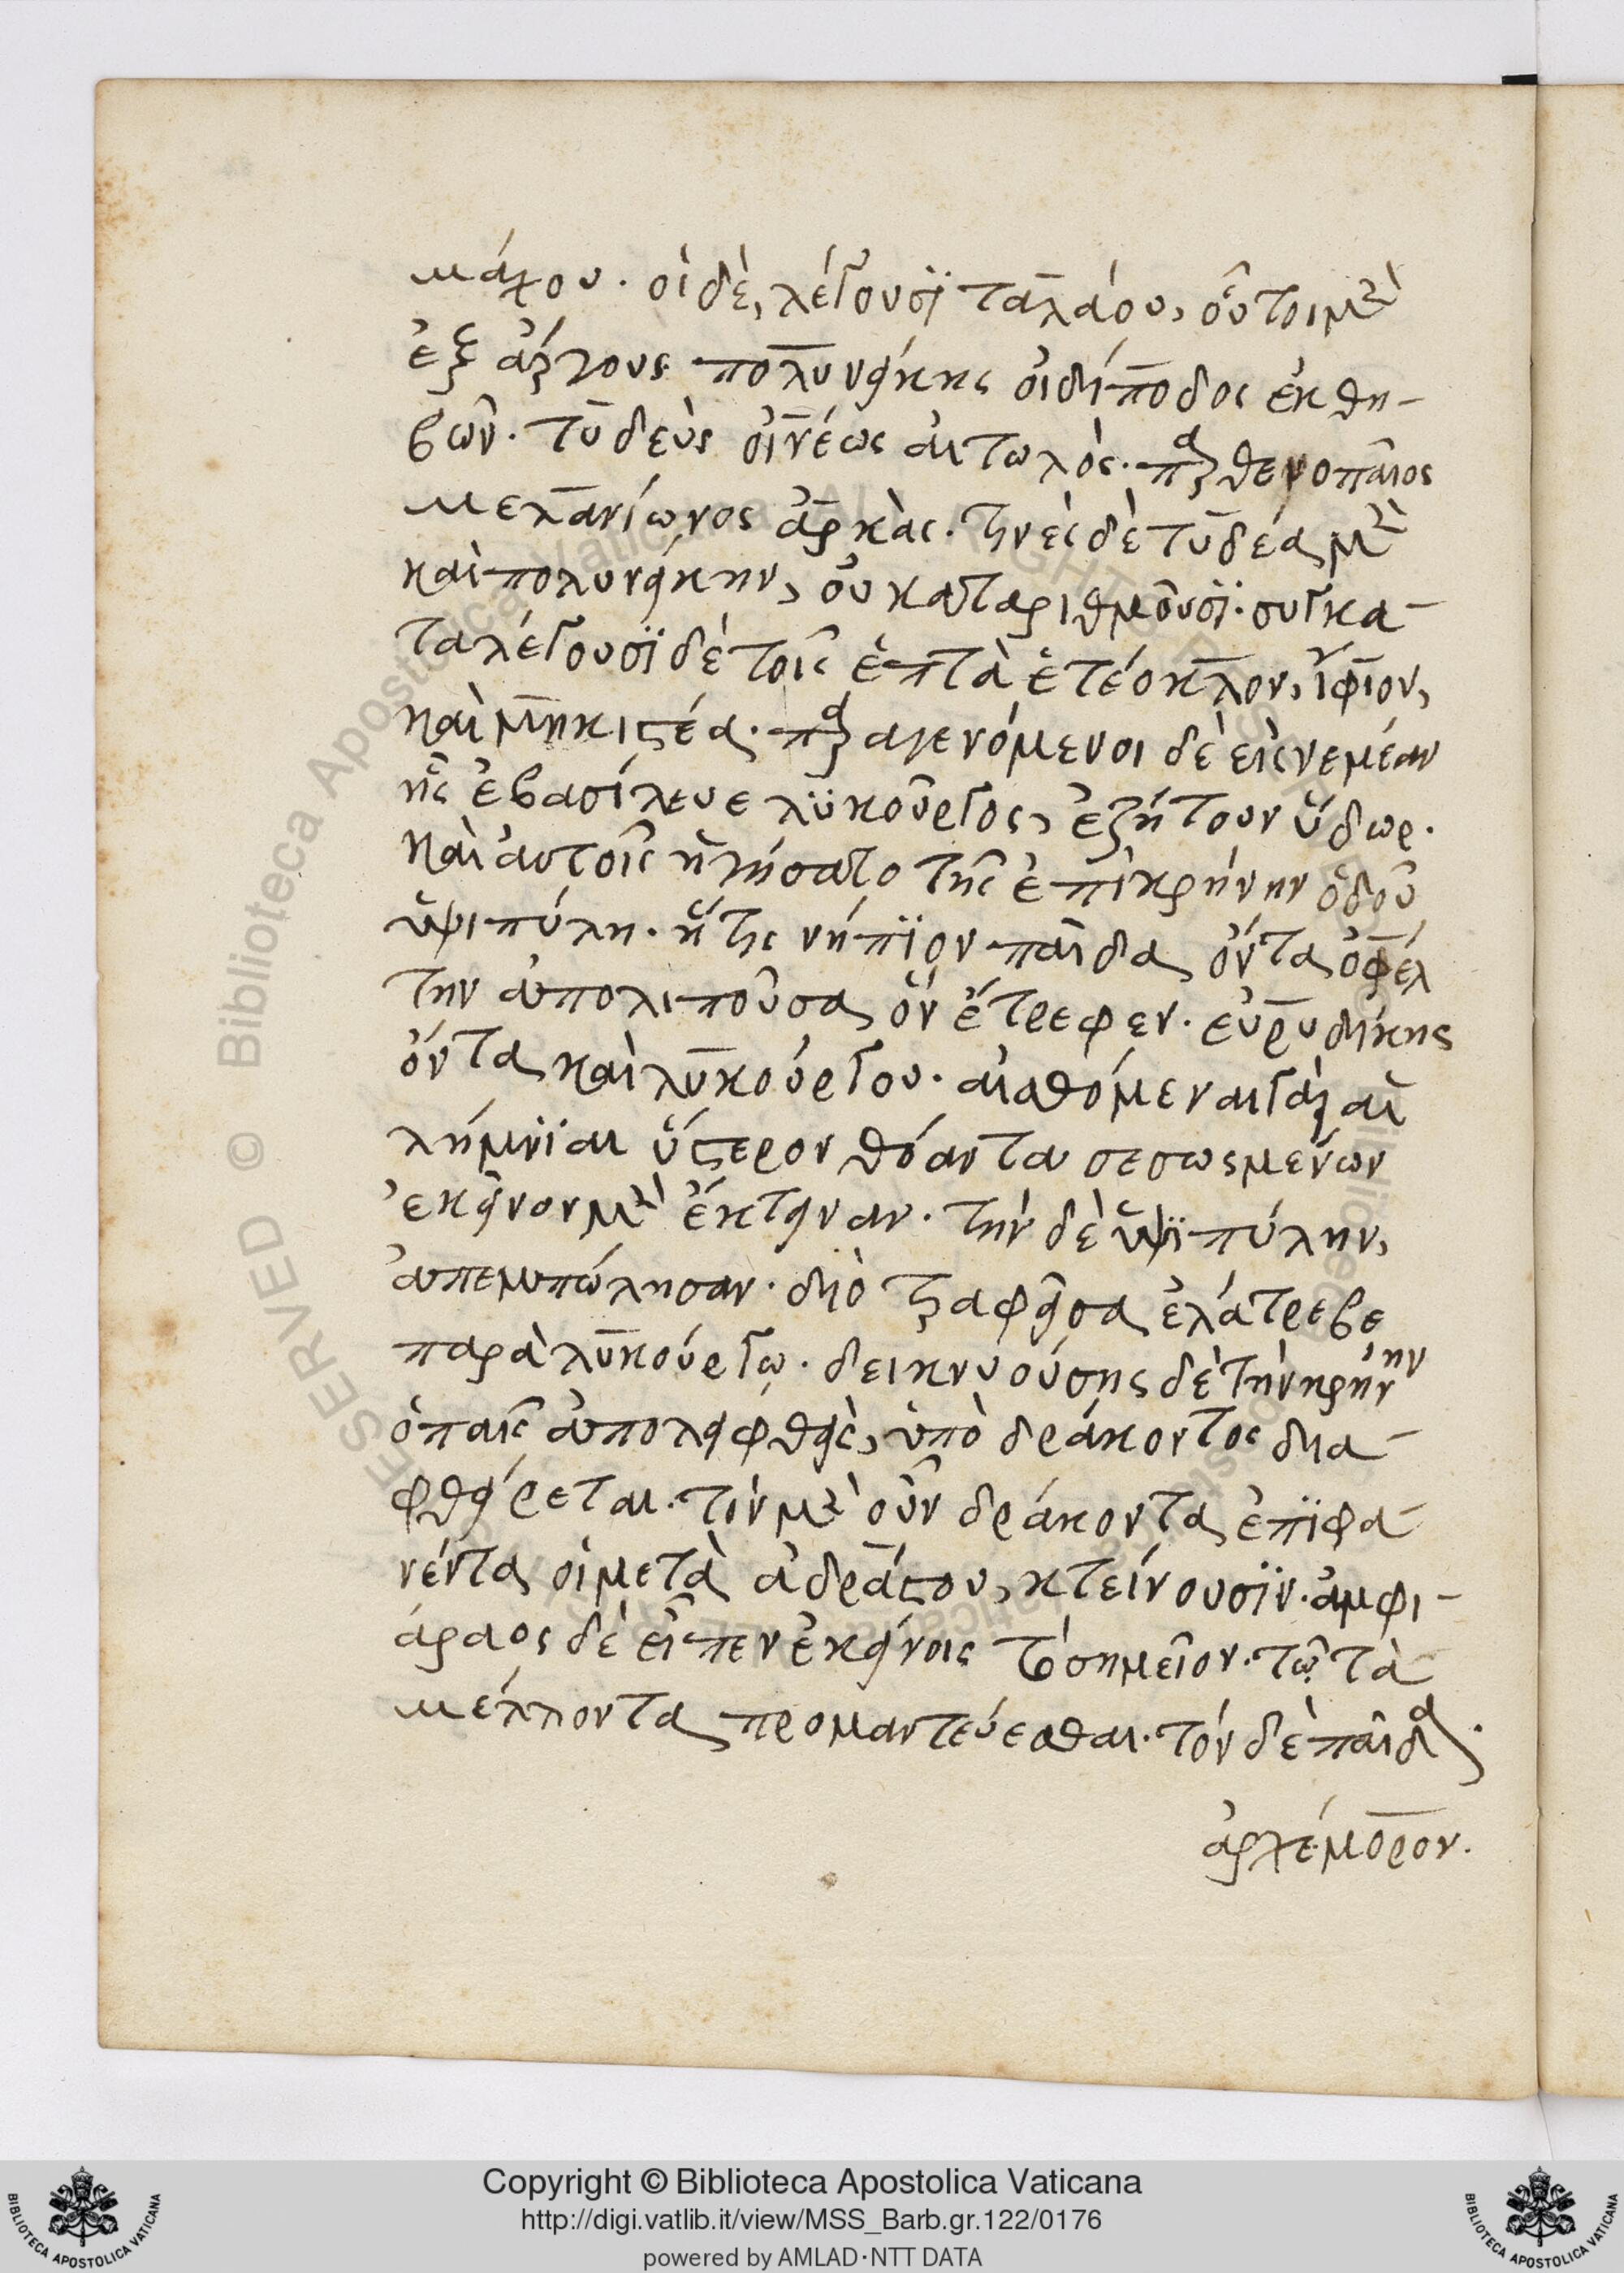 μάχου. οἱ δὲ, λέγουσϊ ταλάου, οὗτοι μὲν
ἐξ ἄργους. πολυνείκης οἰδίποδος ἐκ θη-
βῶν. τυδεὺς οἰνέως αἰτωλὸς. παρθενοπαῖος
μελανίωνος ἀρκὰς. τινὲς δὲ τυδέα μὲν
καὶ πολυνείκην, οὐ καταριθμοῦσϊ. συγκα-
ταλέγουσϊ δὲ τοῖς ἑπτὰ ἐτέοκλον, ἴφιον,
καὶ μηκιστέα. παραγενόμενοι δὲ εἰς νεμέαν
ἧς ἐβασίλευε λϋκοῦργος, ἐζήτουν ὕδωρ.
καὶ αὐτοῖς ἡγήσατο τῆς ἐπὶ κρήνην ὁδοῦ
ὑψιπύλη. ἥτις νήπϊον παῖδα ὄντα ὀφέλ
την ἀπολιποῦσα ὃν ἔτρεφεν. εὐρυδίκης
ὄντα καὶ λυκούργου. αἰσθόμεναι γὰρ αἱ
λήμνϊαι ὕστερον θόαντα σεσωσμένων
ἐκεῖνον μὲν ἔκτειναν. τὴν δὲ ὑψϊπύλην,
ἀπεμπώλησαν. διὸ τραφεῖσα ἐλάτρεβε
παρὰ λυκούργῳ. δεικνυούσης δὲ τὴν κρήνην
ὁ παῖς ἀπολειφθεὶς, ὑπὸ δράκοντος δια-
φθείρεται. τὸν μὲν οὖν δράκοντα ἐπϊφα-
νέντα οἱ μετὰ ἀδράστου, κτείνουσϊν. ἀμφι-
άραος δὲ εἶπεν ἐκείνοις τὸ σημεῖον. τῷ τὰ
μέλλοντα προμαντεύεσθαι. τὸν δὲ παῖδα.
ἀρχέμορον.
Copyright © Biblioteca Apostolica Vaticana
http://digi.vatlib.it/view/MSS_Barb.gr.122/0176
powered by AMLAD·NTT DATA